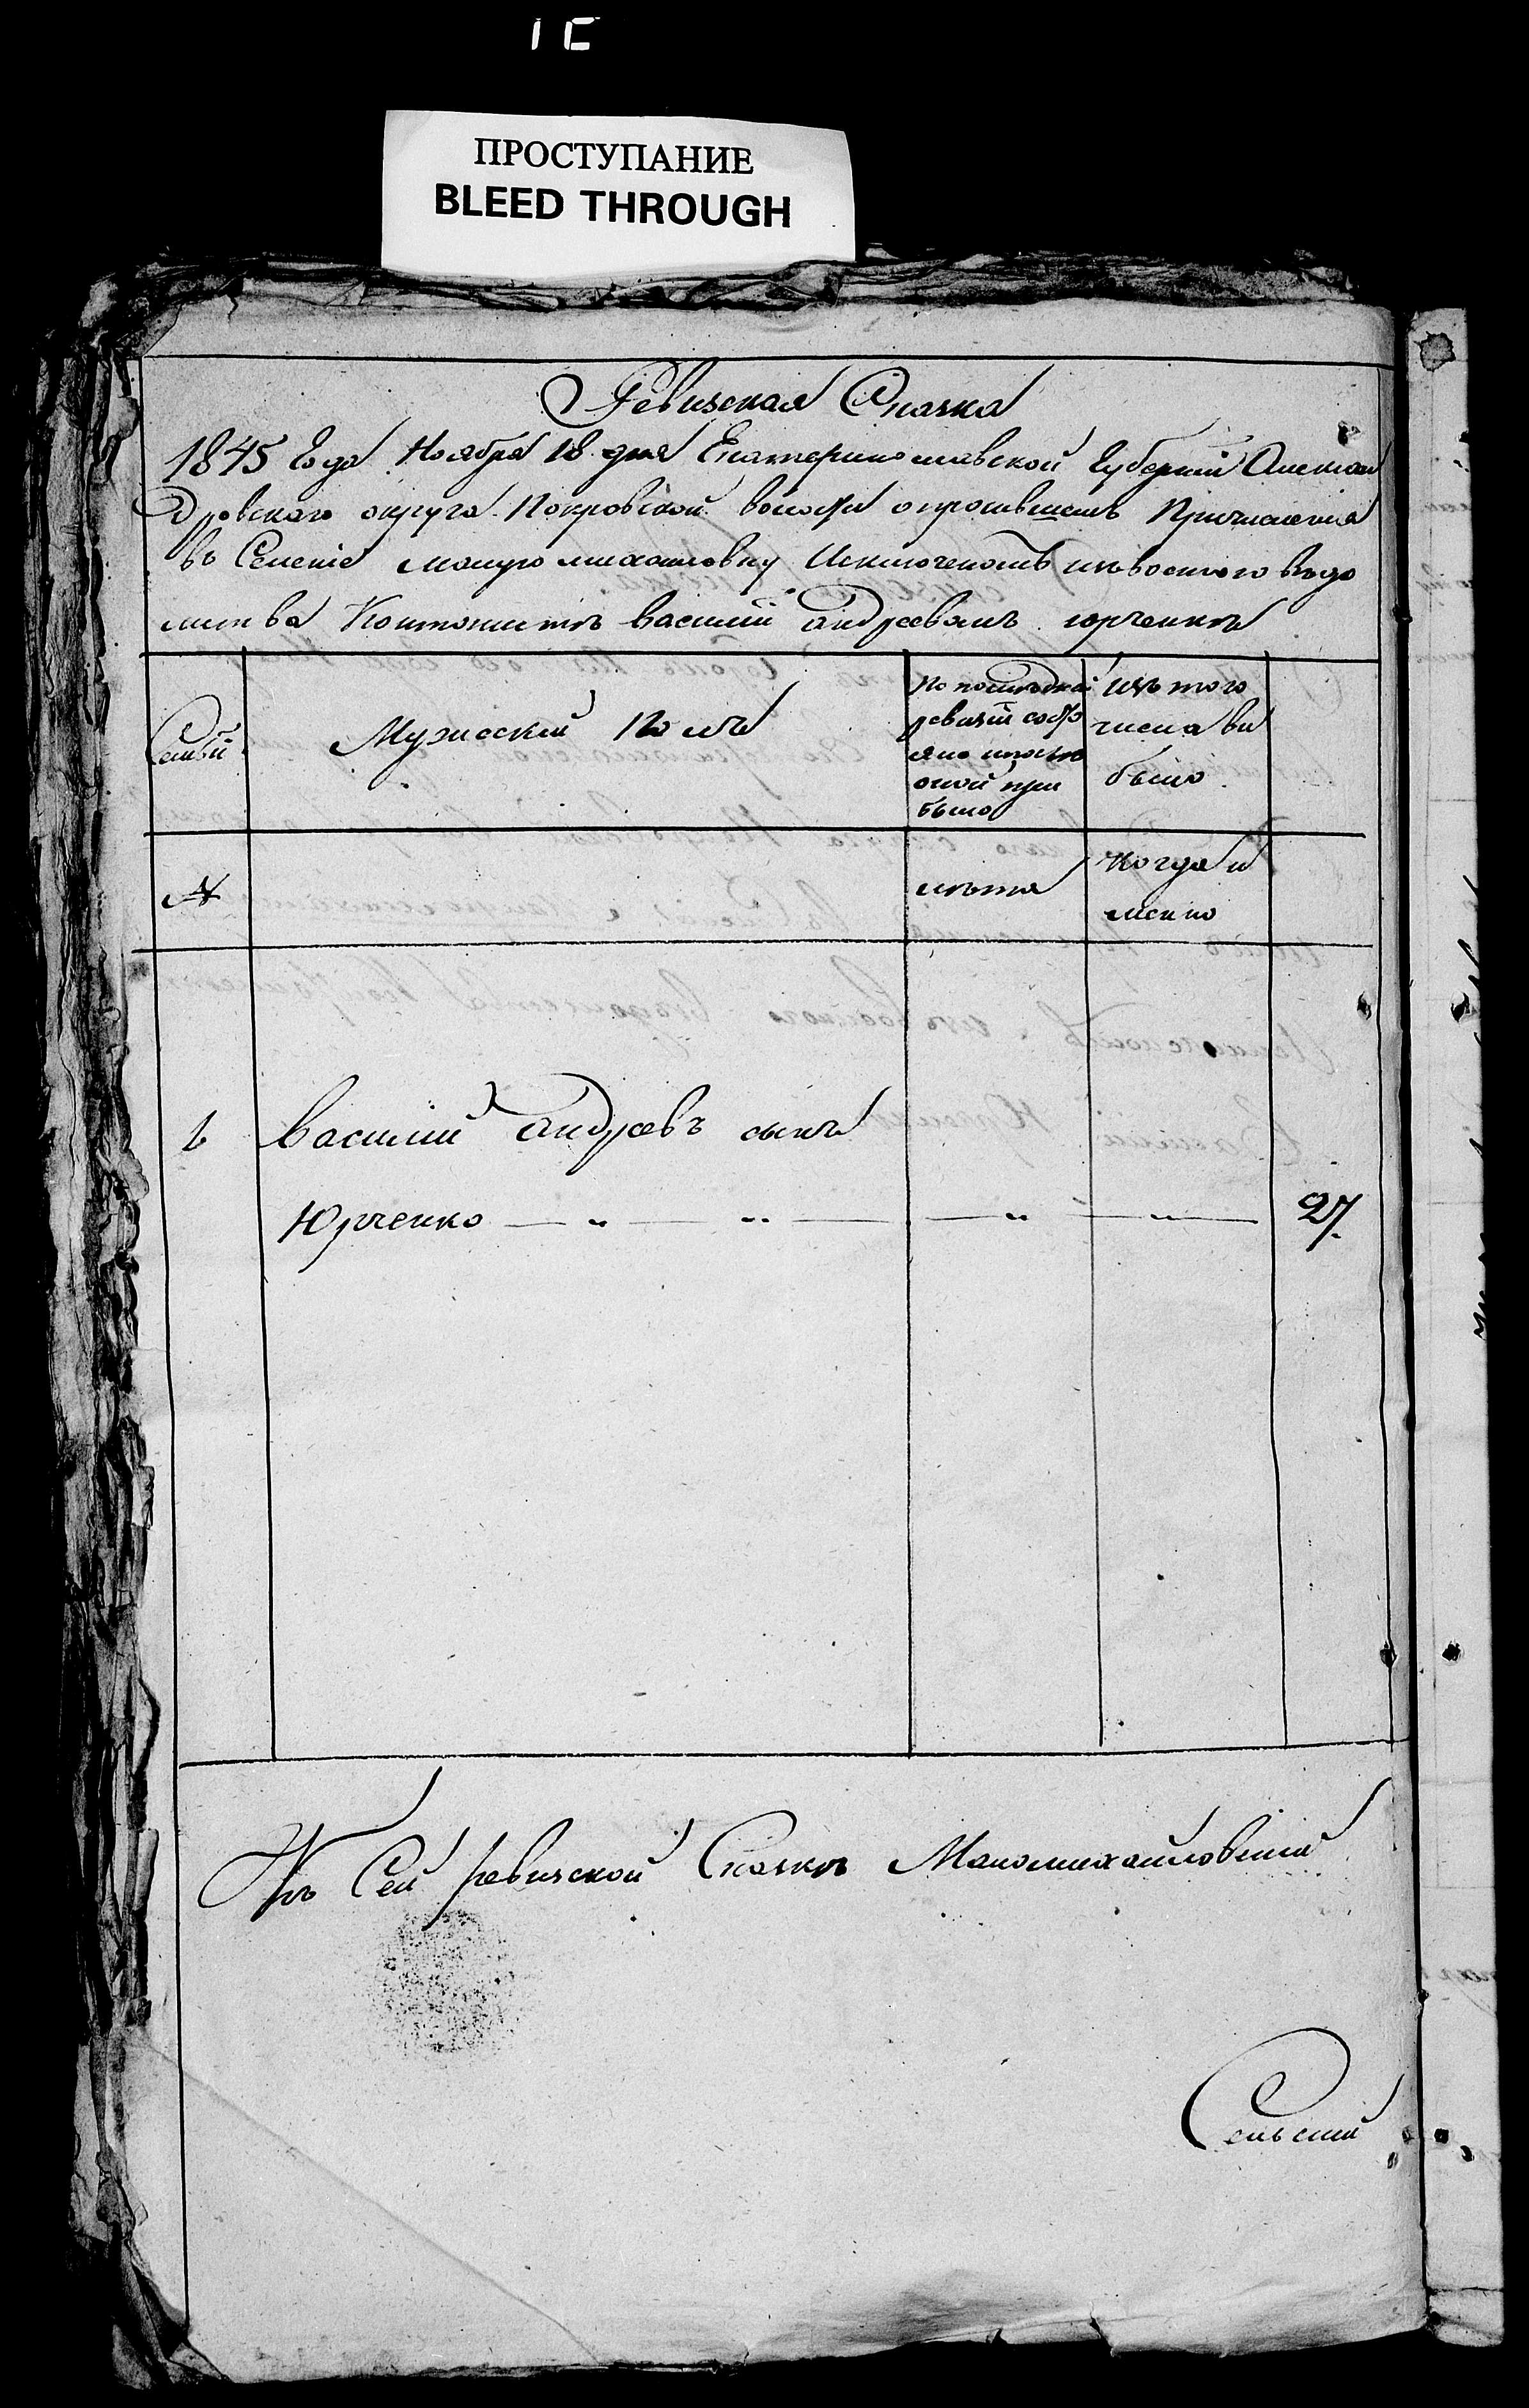 ПРОСТУПАНИЕ
BLEED THROUGH
Ревизская Сказка
1845 Года Ноября 18 дня Екатеринославской Губернии Алексан
дровского округа Покровской волости о причисления
въ Селеніе малую михайловку изъ воен­ного ведо
мства Кантонистъ василий андреевъ юрченко
Семьи
Мужеский Полъ
По последней
ревизии состо
яло и после
оной при
было
изъ того
числа вы
было
№
лета
когда и
менно
1 василий андреевъ сынъ
Юрченко — „ — „ — — „ — „ — 27.
Къ Сей ревизской Сказке Маломихайловский
Сельский